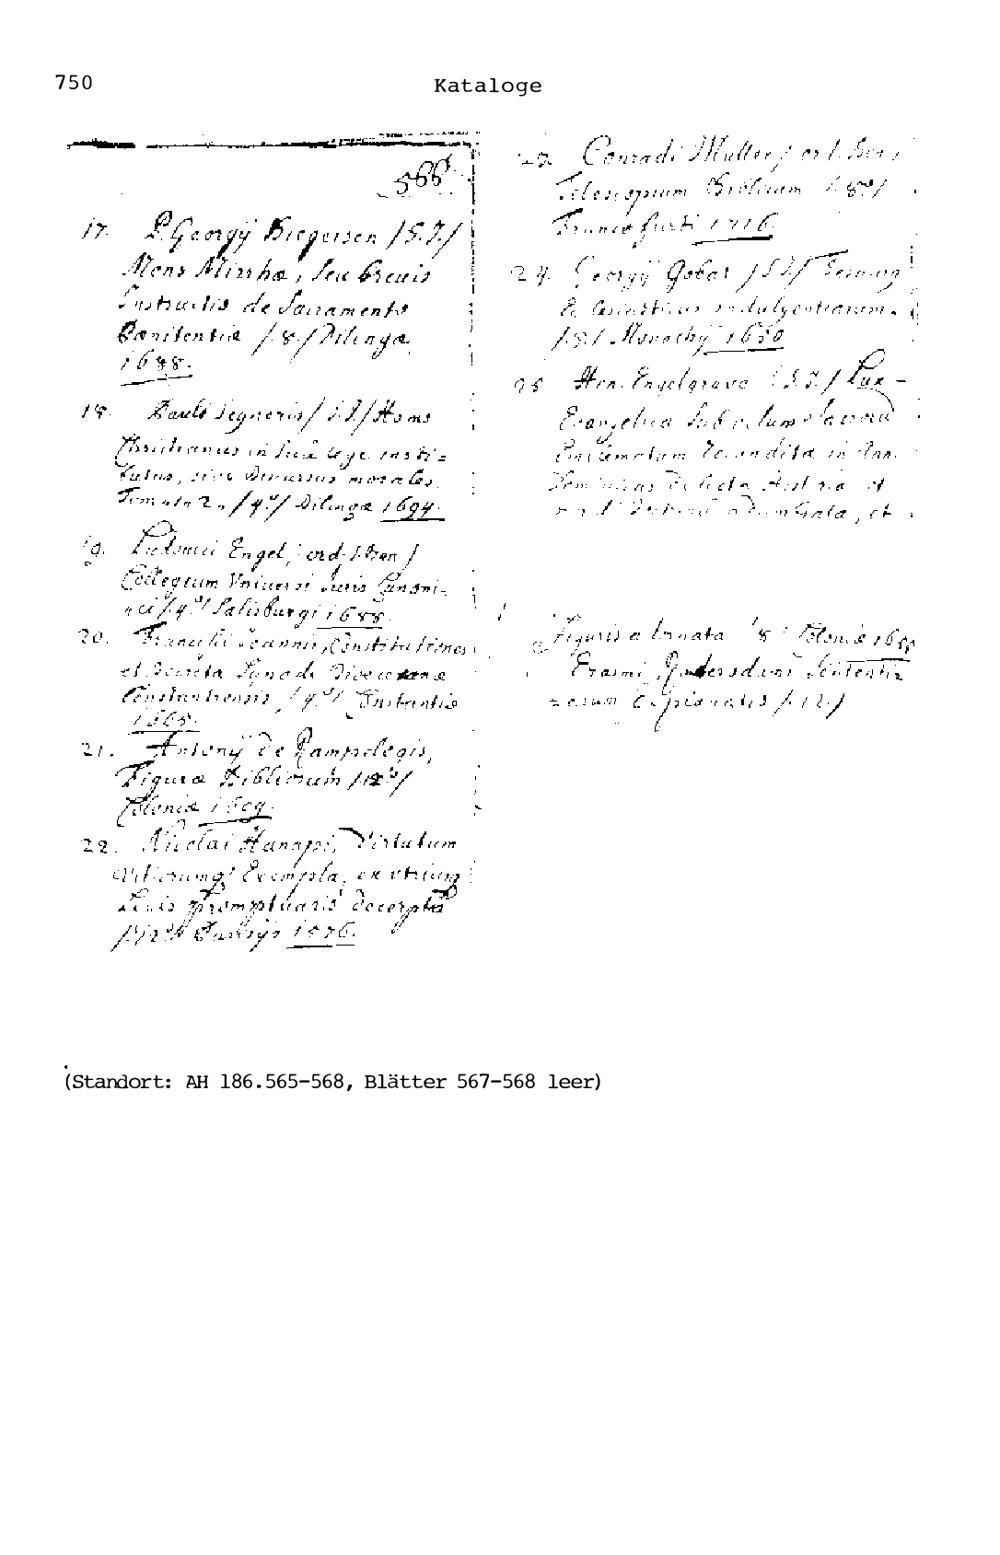 750
Kataloge
566
17. P. Georgÿ Biegeisen /S.J./
Mons Mirrhæ, seu brevis
Instructio de Sacramento
Pœnitentiæ /8./ Dilingæ
1688.
18. Pauli Segneris /S.J./ Homo
Christianus in suâ Lege insti=
tutus, sive Discursus morales.
Tomuln 2. /4º/ Dilingæ 1694.
19. Ludovici Engel, ord. S. Ben /
Collegium Universi Juris Canoni=
ci /4º/ Salisburgi 1688.
20. Francisci Joannis, Constitutiones
et Decreta Synodi Diœcesanæ
Constantiensis, /4º/ Constantiæ
1568.
21. Antonÿ de Rampelogis,
Figuræ Bibliorum /12º/
Coloniæ 1609.
22. Nicolai Hanapi, Virtutum
Vitiorumq; Exempla, ex utriusq;
Legis promptuario decerpta
/12º/ Parisÿs 1576.
23. Conradi Muller / ord. Ben /
Telescopium Biblicum /8º/
Francofurti 1716.
24. Georgÿ Gobat /S.J./
indulgentiarum.
/8./ Monachÿ 1650
25 Hen. Engelgrave /S.J./ Lux -
Evangelica sub velum sacrorum
Emblematum recondita in Ann.
Dominicas selecta historia et
adumbrata, et
Figuris adornata /8º/ Coloniæ
Erasmi Sententia=
/12./
(Standort: AH 186.565-568, Blätter 567-568 leer)